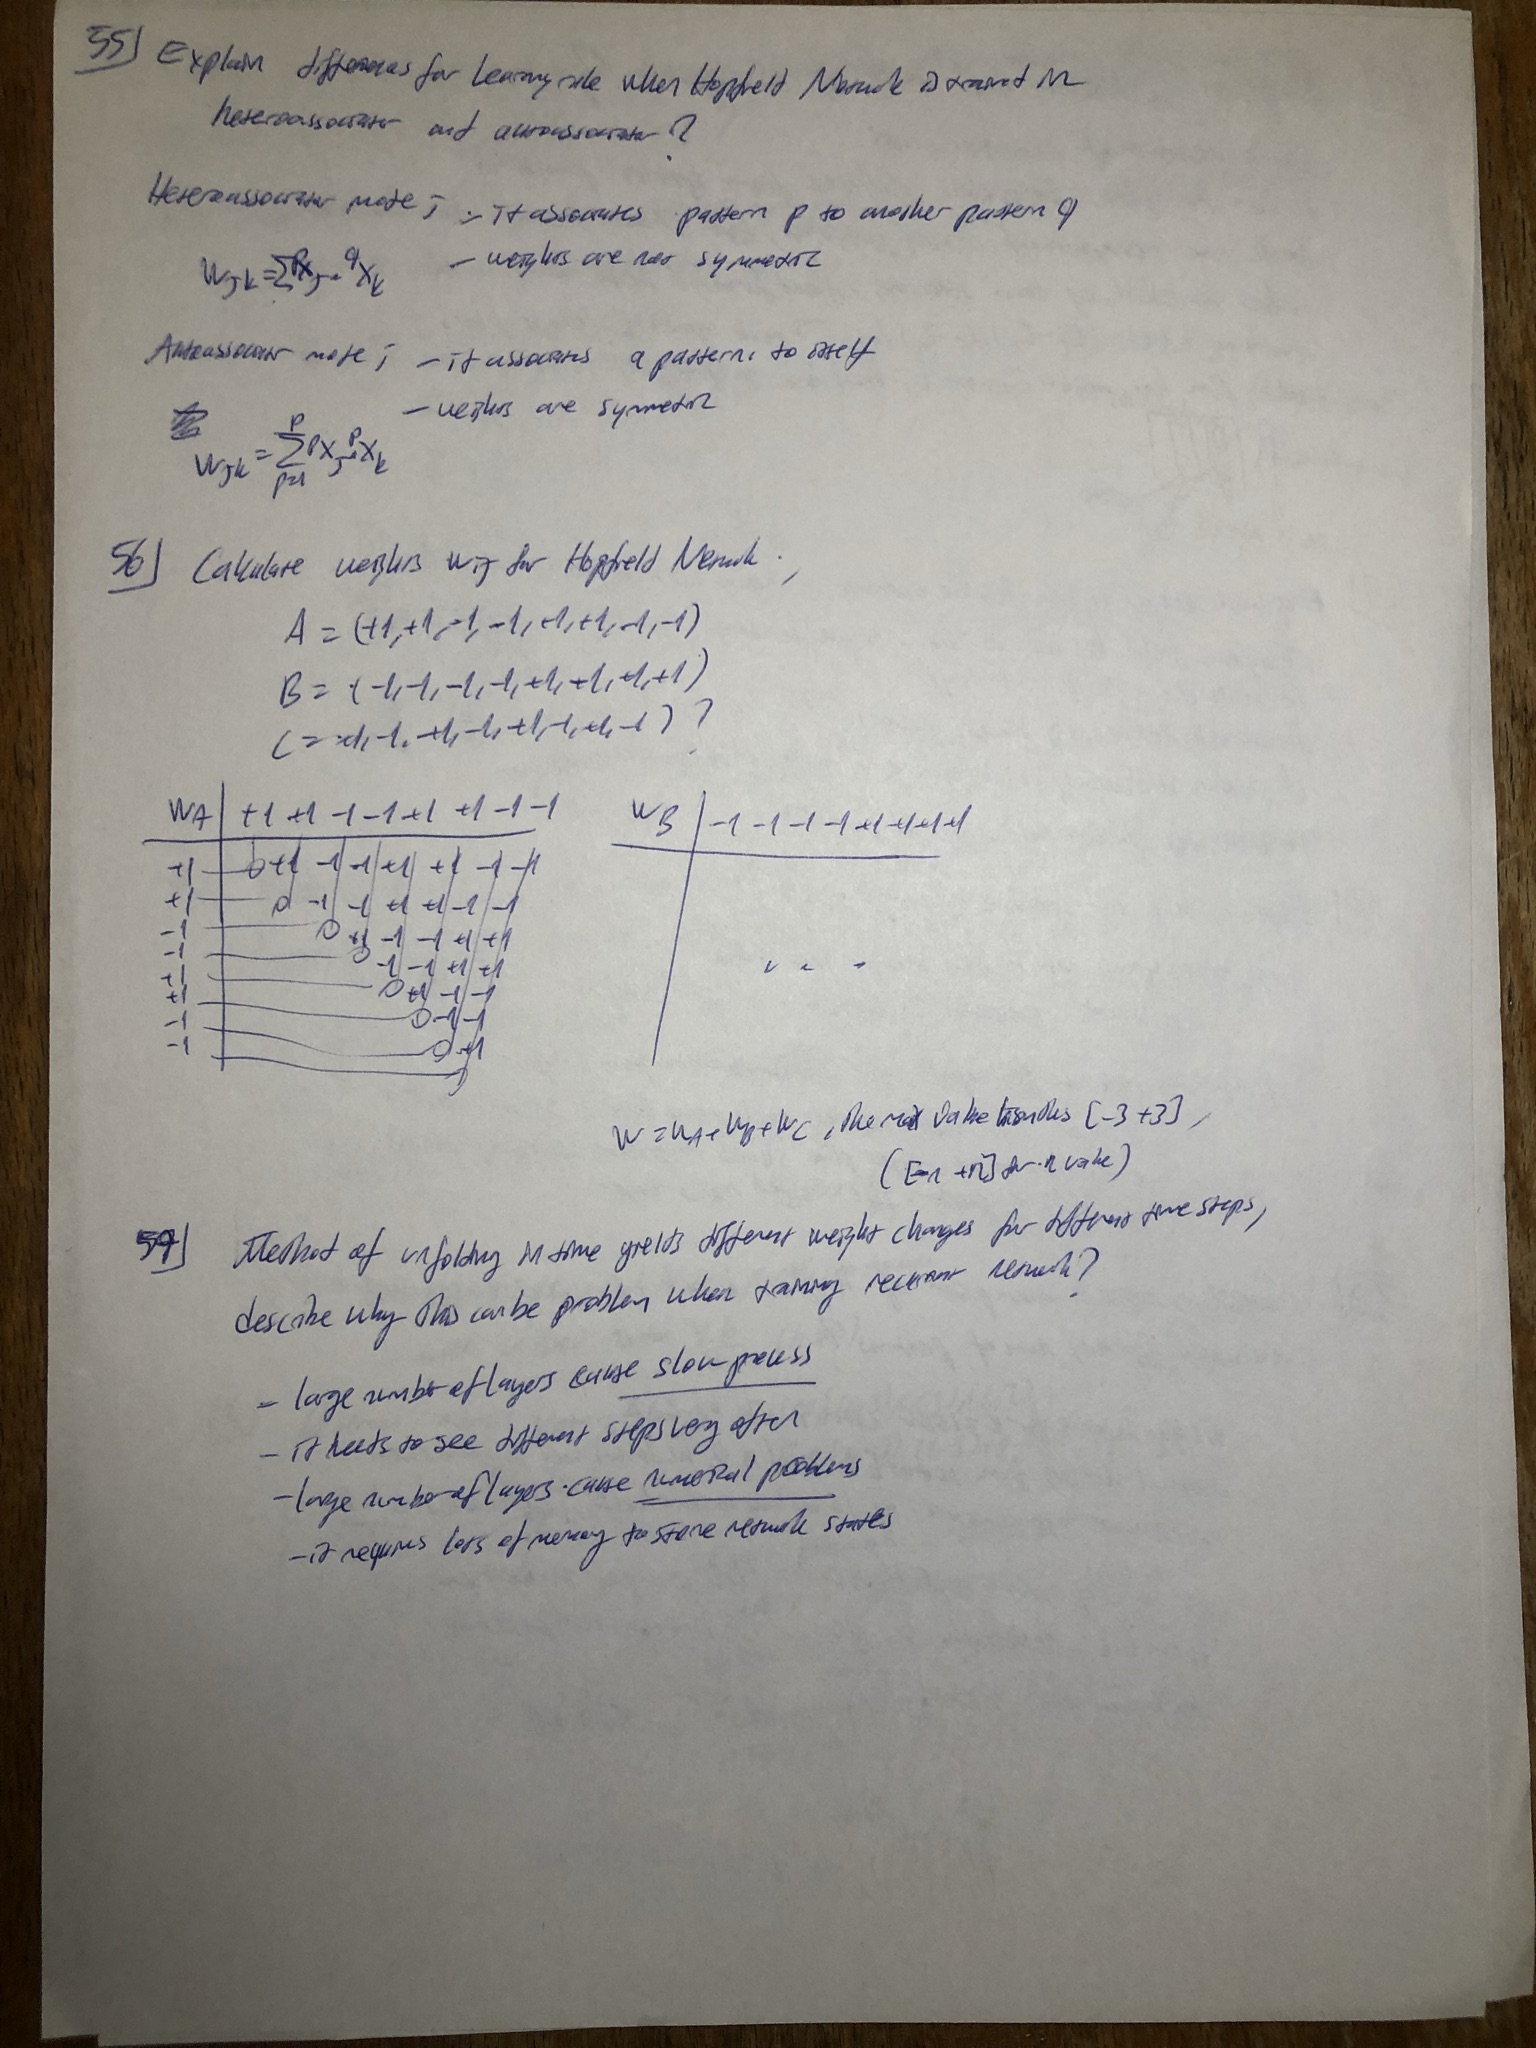 55) Explain differences for learning rule when Hopfield Network is trained in
heteroassociator and autoassociator?
Heteroassociator mode; - it associates pattern p to another pattern q
Wjk = Σ pxj · qxk - weights are not symmetric
Autoassociator mode; - it associates a pattern to itself
- weights are symmetric
Wjk = Σ P p=1 pxj · pxk
56) Calculate weights wij for Hopfield Network.,
A = (+1,+1,-1,-1,+1,+1,-1,-1)
B = (-1,-1,-1,-1,+1,+1,+1,+1)
C = +1,-1,+1,-1,+1,-1,+1,-1)?
WA +1 +1 -1 -1 +1 +1 -1 -1
+1 0 +1 -1 -1 +1 +1 -1 -1
+1 0 -1 -1 +1 +1 -1 -1
-1 0 +1 -1 -1 +1 +1
-1 0 -1 -1 +1 +1
+1 0 +1 -1 -1
+1 0 -1 -1
-1 0 +1
-1 0
WB -1 -1 -1 -1 +1 +1 +1 +1
. . .
W = WA + WB + WC, the max value [-3 +3],
([-n +n] for n value)
57) Method of unfolding in time yields different weight changes for different time steps,
describe why this can be problem when training recurrent network?
- large number of layers cause slow process
- it needs to see different steps very often
- large number of layers cause numerical problems
- it requires lots of memory to store network states